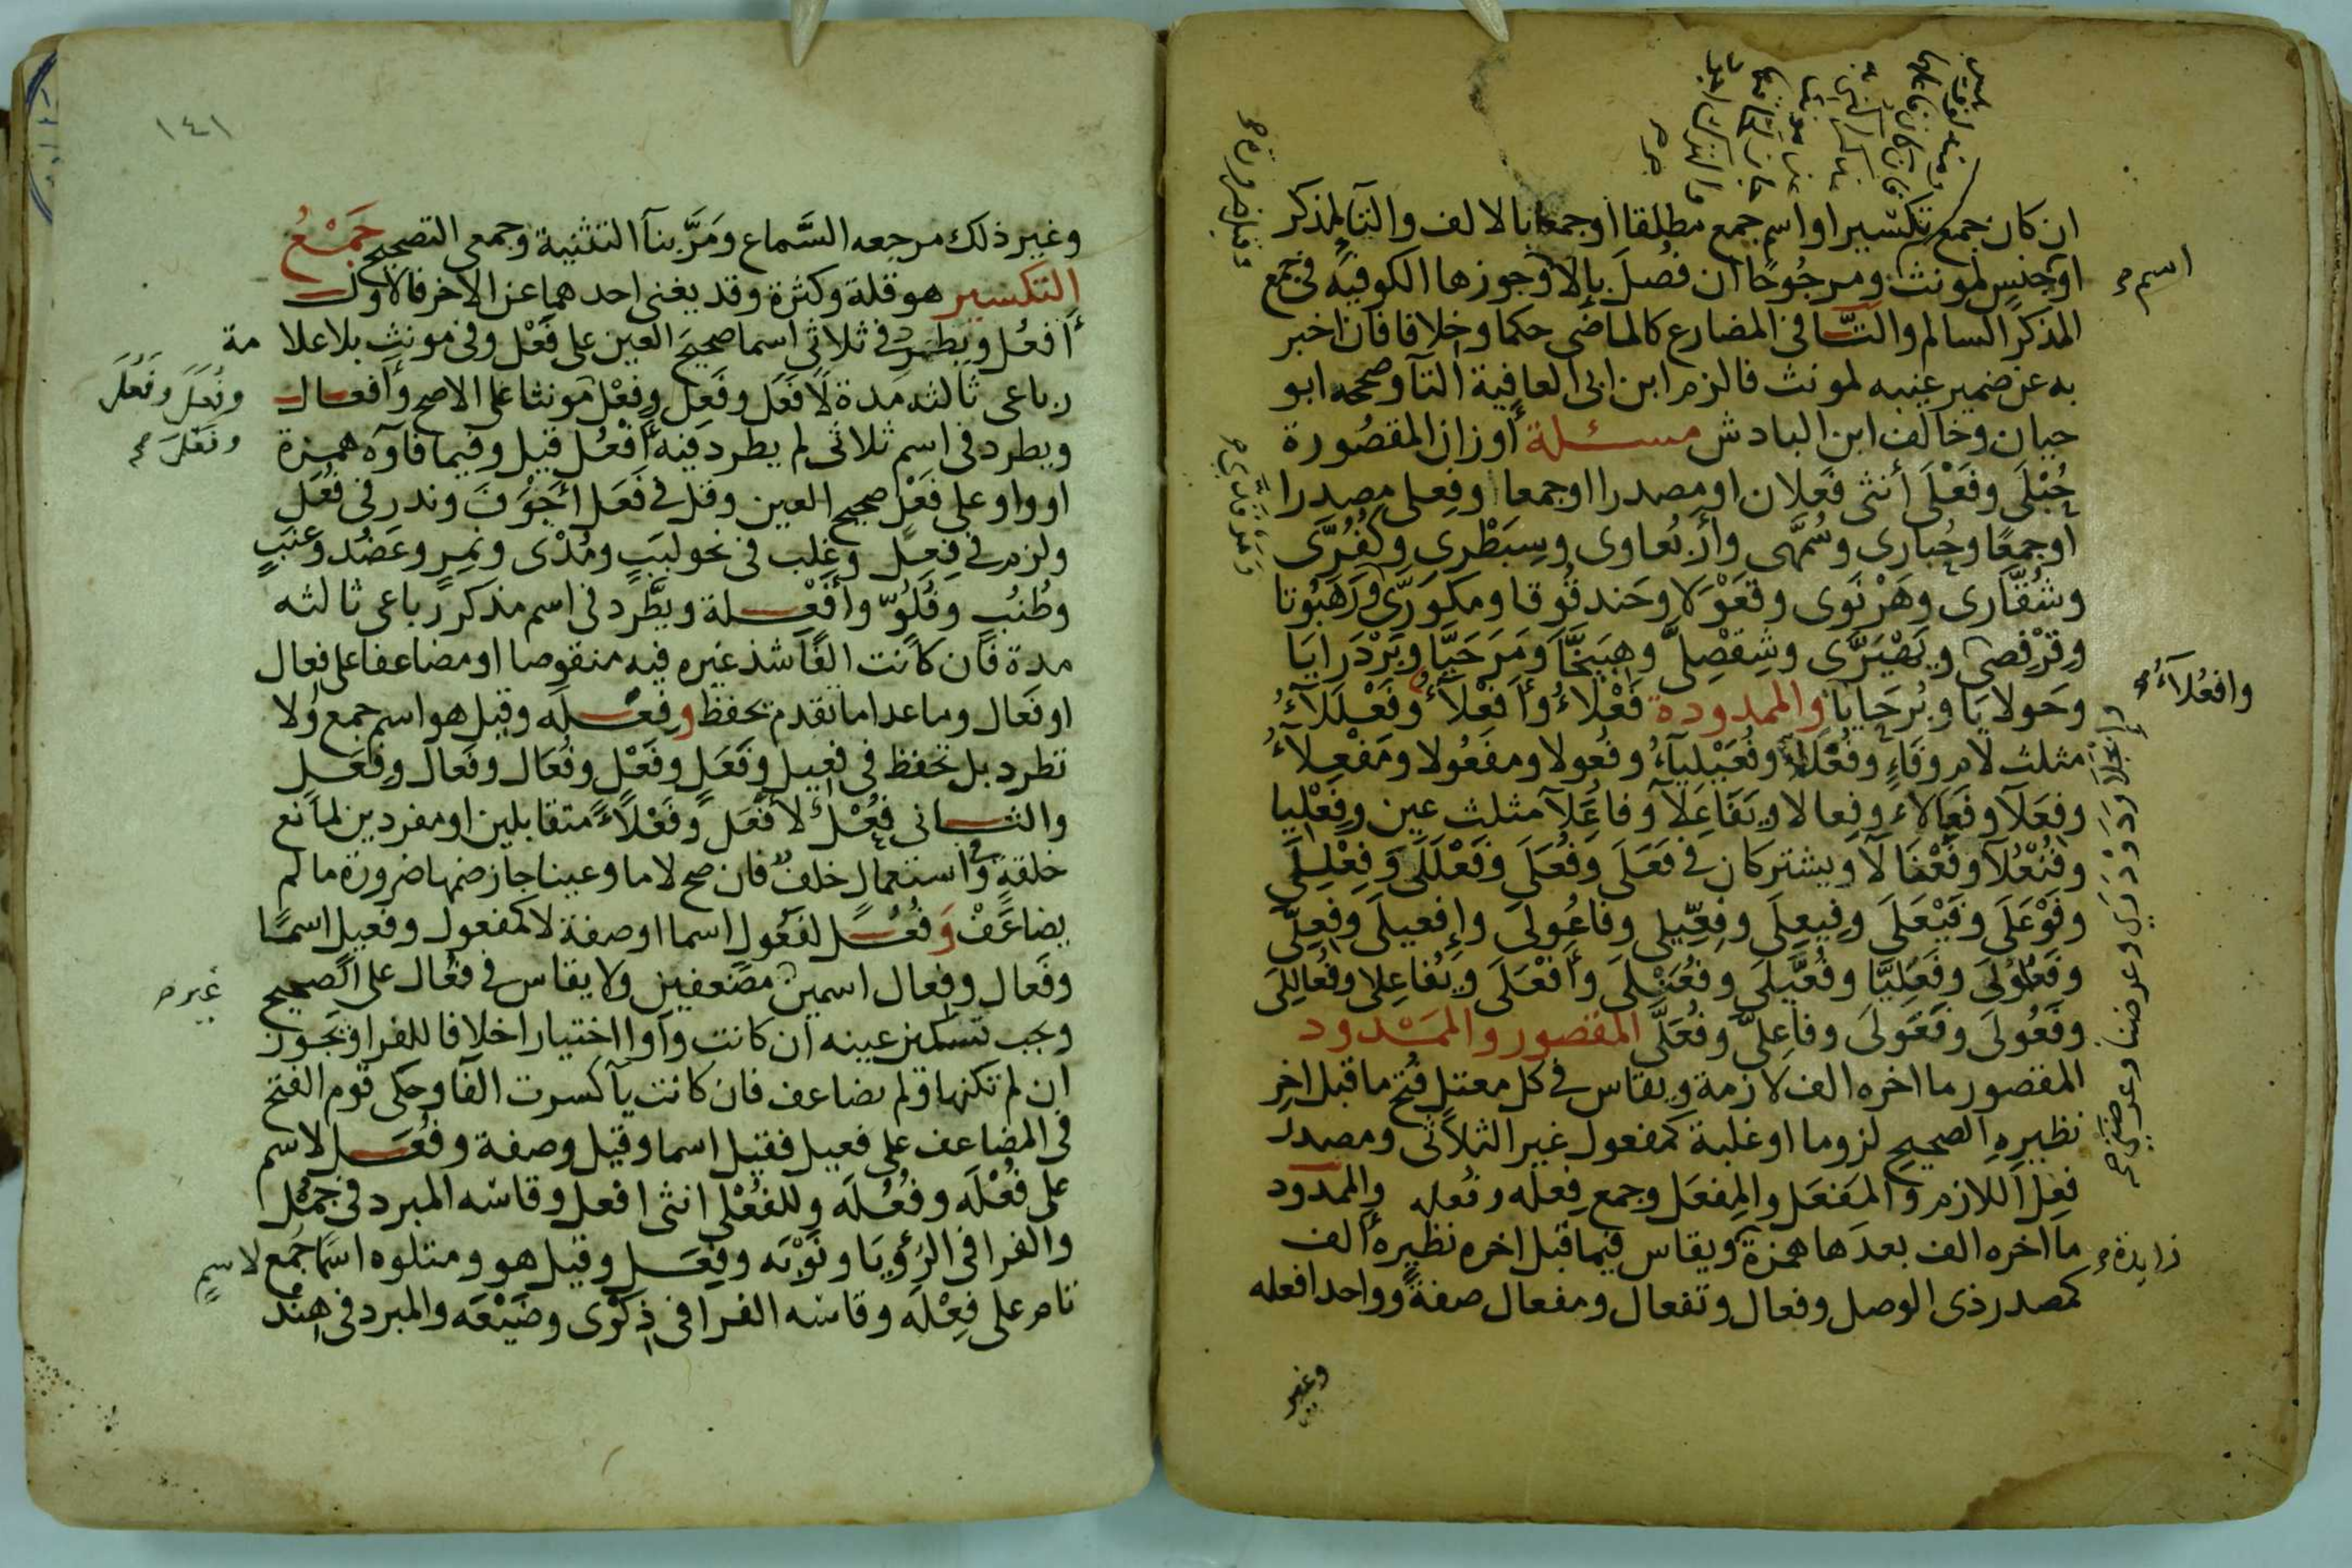 ان كان جمع تكسير او اسم جمع مطلقا اوجمعا بالالف والتا لمذكر
اوجنس لمونث ومرجُوحًا ان فُصل بإلا وجوزها الكوفية في جمع
اسم
المذكر السالم والتّا في المضارع كالماضي حكما وخلافا فان اخبر
به عن ضمير غيبه لمونث فالزم ابن ابي العافية التآ وصححه ابو
حيان وخالف ابن الباذش مسئلة أوزان المقصُورة
حُبْلَى وفَعْلَى أنثى فَعلان او مصدرا اوجمعا وفِعلى مصدرا
اوجمعًا وحُبارى وسُمَّهى وأرْبُعاوى وسِبَطْرى وكُفُرَّى
وشُقّارى وهَرْنَوى وقَعْوَلا وحَندقُوقا ومكوَرَّى ورَهَبُوتا
وقرْفصى ويَهْيَرَّى وشِفْصِلَّى وهَبَيَّخَا ومَرَحَيَّا وبَرْدَرايَا
وحَولايَا وبُرَحَايَا والممدودة فَعْلاءُ وأفعلاءُ وفَعْلَلاءُ
وافعُلاءُ
مثلث لام وفاءٍ وفُعْلُلاء وفُعَيْلياءُ وفُعولا ومفعُولا ومَفْعِلآءُ
وفعَلآ وفَعَالاء وفِعالا وتَفَاعَلآ وفاعُلآ مثلث عين وفِعْليا
وفُنْعُلآ وفَعْنَالآ ويشتركان في فَعَلَى وفُعَلَى وفَعْلَلَى وفِعْلِلَى
وفَوْعَلَى وفَيْعَلَى وفِيعِلَى وفِعِّيلى وفاعُولى وإفعيلَى وفِعِلَّى
وفَعْلُولَى وفَعَلِيَّا وفُعَّيلَى وفُعَنْلَى وأَفْعَلَى ويُفاعِلى وفُعَالِلَى
وفَعُولَى وفَعَوْلَى وفاعِلَّى وفُعَلَّى المقصور والممدود
المقصور ما اخره الف لازمة ويقاس في كل معتل فُتح ما قبل اخرِ
نظيره الصحيح لزوما او غلبة كمفعول غير الثلاثى ومصدر
فعِل اللازم والمَفعَل والمِفعَل وجمع فِعله وفُعله والممدود
ما اخره الف بعدها همزة ويقاس فيما قبل اخره نظيره ألف
زايدة
كمصدر ذى الوصل وفعال وتفعال ومفعال صفةً وواحد افعله
وغير
١٤١
وغير ذلك مرجعه السَّماع ومَرَّ بنآ التثنية وجمعى التصحيح جَمْعُ
التكسير هو قلة وكثرة وقد يغنى احدهما عن الاخر فالاول
أفعُل ويطرد في ثلاثي اسما صحيحَ العين على فَعْل وفي مونث بلا علامة
رباعى ثالثه مَدة لا فَعَل وفَعِل وفِعْل مونثا على الاصح وأفعال
ويطرد في اسم ثلاثى لم يطرد فيه أَفْعُل قيل وفيما فآوه همزة
او واو على فَعْل صحيح العين وقل في فَعَل أَجْوَفَ وندر في فُعَل
ولزم في فِعِل وغلب في نحو لبَبٍ ومُدْى ونمِرٍ وعَضُد وعِنَبٍ
وطُنُبٍ وفُلُوّ وأفْعلة ويطَّرد في اسم مذكر رباعي ثالثه
مدة فان كانت الفًا شذ غيره فيه منقوصا او مضاعفا على فِعال
او فَعال وما عدا ما تقدم يحفظ وفِعْلَه وقيل هو اسم جمع ولا
تطرد بل تحفظ في فعيل وفَعَل وفَعْل وفُعَال وفَعال وفِعَل
والثاني فُعْل لأفْعَل وفَعْلاء متقابلين او مفردين لمانع
خلقةٍ وفي استعمال خلف فان صح لاما وعينا جاز ضمها ضرورة ما لم
يضاعَفْ وَفُعُل لفَعُول اسما او صفة لا كمفعول وفعيل اسما
وفَعال وفِعال اسمين مضعفين ولا يقاس في فعُال على الصحيح
غير
ويجب تسكين عينه ان كانت وآوا اختيارا خلافا للفرا ويجوز
ان لم تكنها ولم يضاعف فان كانت يآ كسرت الفآ وحكى قوم الفتح
في المضاعف على فعيل فقيل اسما وقيل وصفة وفُعَل لاسم
على فُعْلَه وفُعُلَه وللفُعْلى انثى افعل وقاسه المبرد في جُمْل
والفرا في الرُؤيَا ونَوْبَه وفِعَل وقيل هو ومتلوه اسما جمع لاسمٍ
تام على فِعْلَه وقاسه الفرا في ذِكْرى وضَيْعَه والمبرد في هِنْد